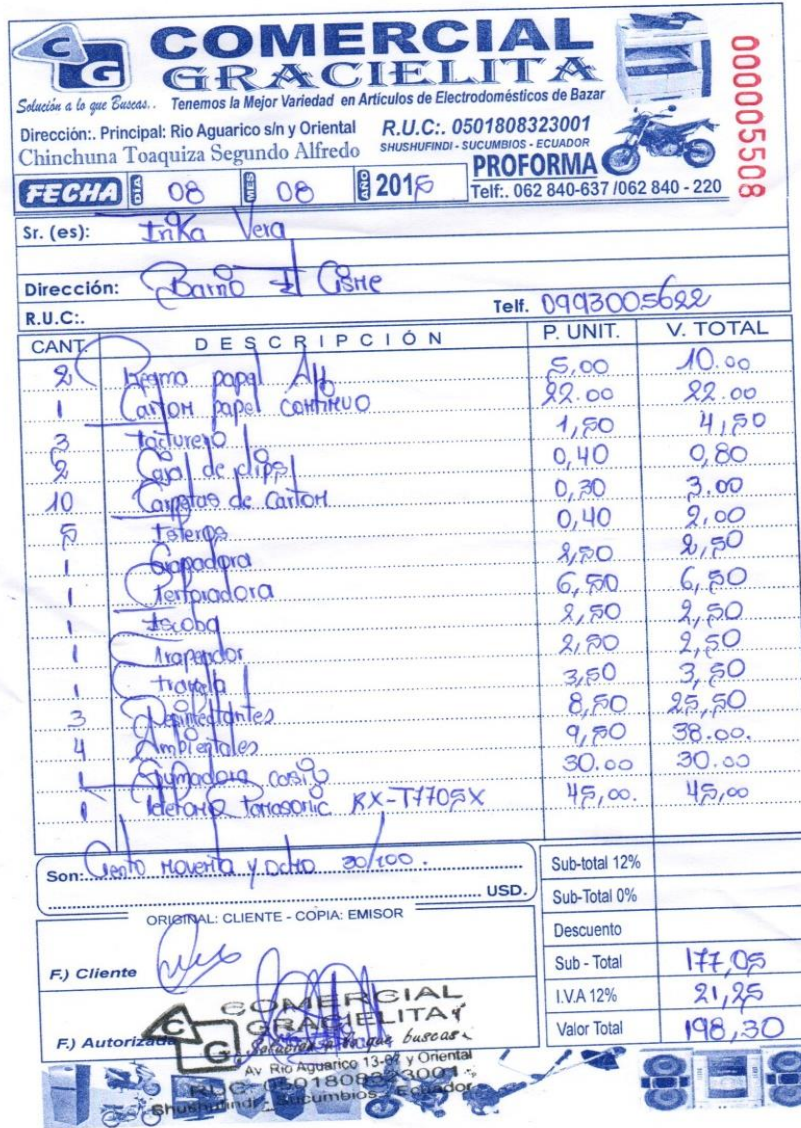 C G
COMERCIAL
GRACIELITA
Solución a lo que Buscas.. Tenemos la Mejor Variedad en Artículos de Electrodomésticos de Bazar
Dirección:. Principal: Rio Aguarico s/n y Oriental R.U.C:. 0501808323001
Chinchuna Toaquiza Segundo Alfredo SHUSHUFINDI - SUCUMBIOS - ECUADOR
PROFORMA
FECHA DIA 08 MES 08 AÑO 2015 Telf:. 062 840-637 /062 840 - 220
000005508
Sr. (es): Erika Vera
Dirección: Barrio El Cisne
R.U.C:. Telf. 0993005622
CANT. DESCRIPCIÓN P. UNIT. V. TOTAL
2 Resma papel A4 5,00 10.00
1 Carton papel continuo 22.00 22.00
3 facturero 1,50 4,50
2 Caja de clips 0,40 0,80
10 Carpetas de Carton 0,30 3.00
5 Esferos 0,40 2,00
1 Grapadora 2,50 2,50
1 Perforadora 6,50 6,50
1 Escoba 2,50 2,50
1 trapeador 2,50 2,50
1 franela 3,50 3,50
3 Desinfectantes 8,50 25,50
4 Ambientales 9,50 38.00.
1 Sumadora casio 30.00 30.00
1 telefono Panasonic KX-T7705X 45,00. 45,00
Son: Ciento noventa y ocho 30/100.
USD.
ORIGINAL: CLIENTE - COPIA: EMISOR
Sub-total 12%
Sub-Total 0%
Descuento
Sub - Total 177,05
I.V.A 12% 21,25
Valor Total 198,30
F.) Cliente
F.) Autorizada
C G
COMERCIAL
GRACIELITA
Solución a lo que buscas
Av. Rio Aguarico 13-07 y Oriental
RUC: 0501808323001
Shushufindi - Sucumbios - Ecuador